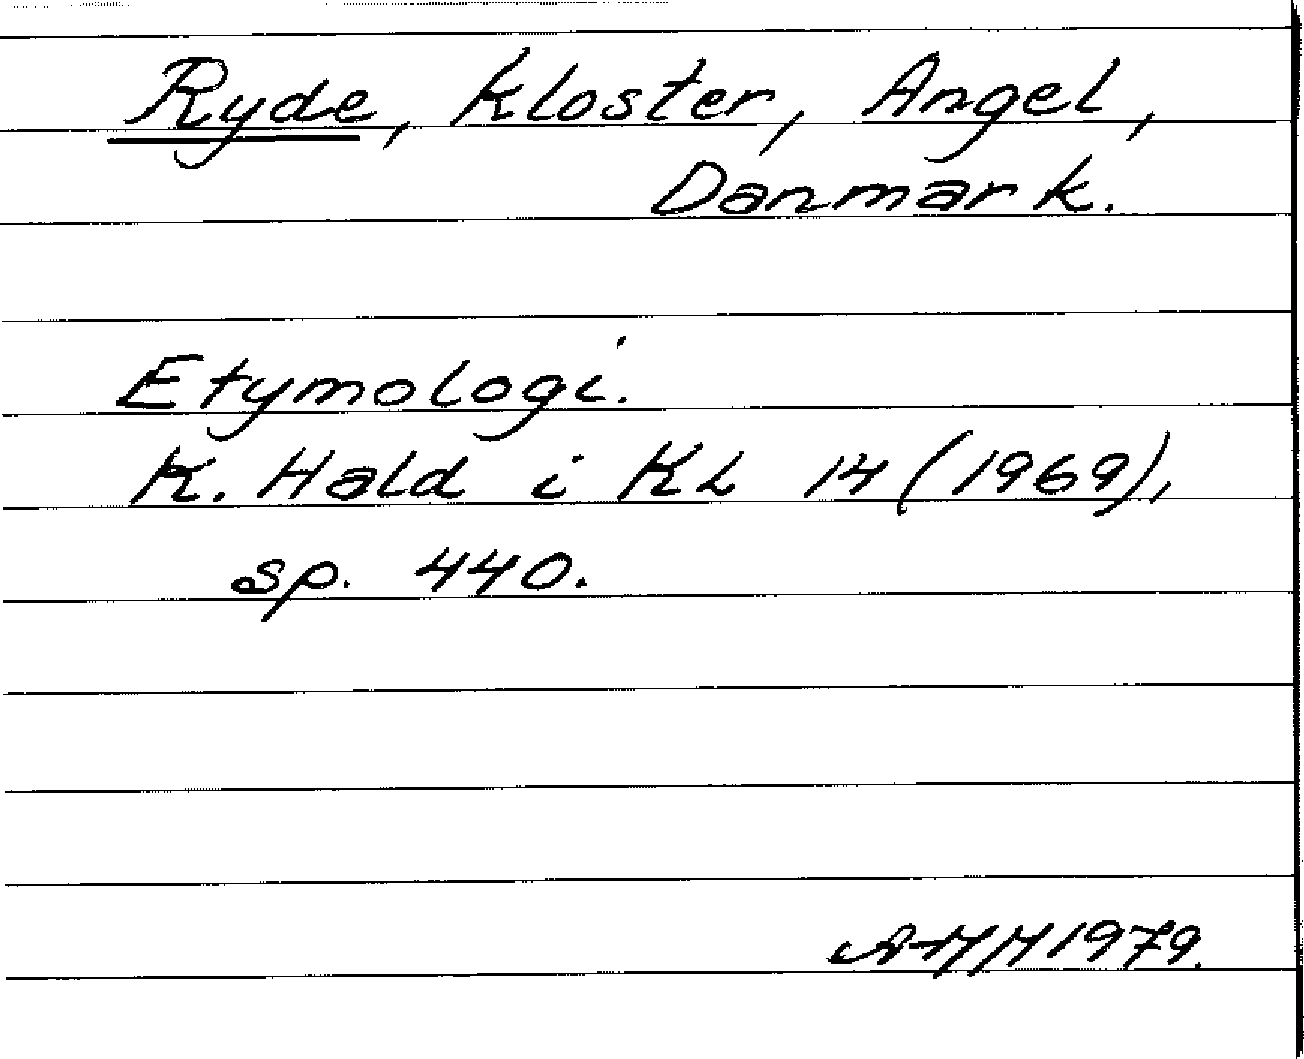 Ryde, Kloster, Angel,
Danmark.
Etymologi.
K. Hald i KL 14 (1969),
sp. 440.
1979.